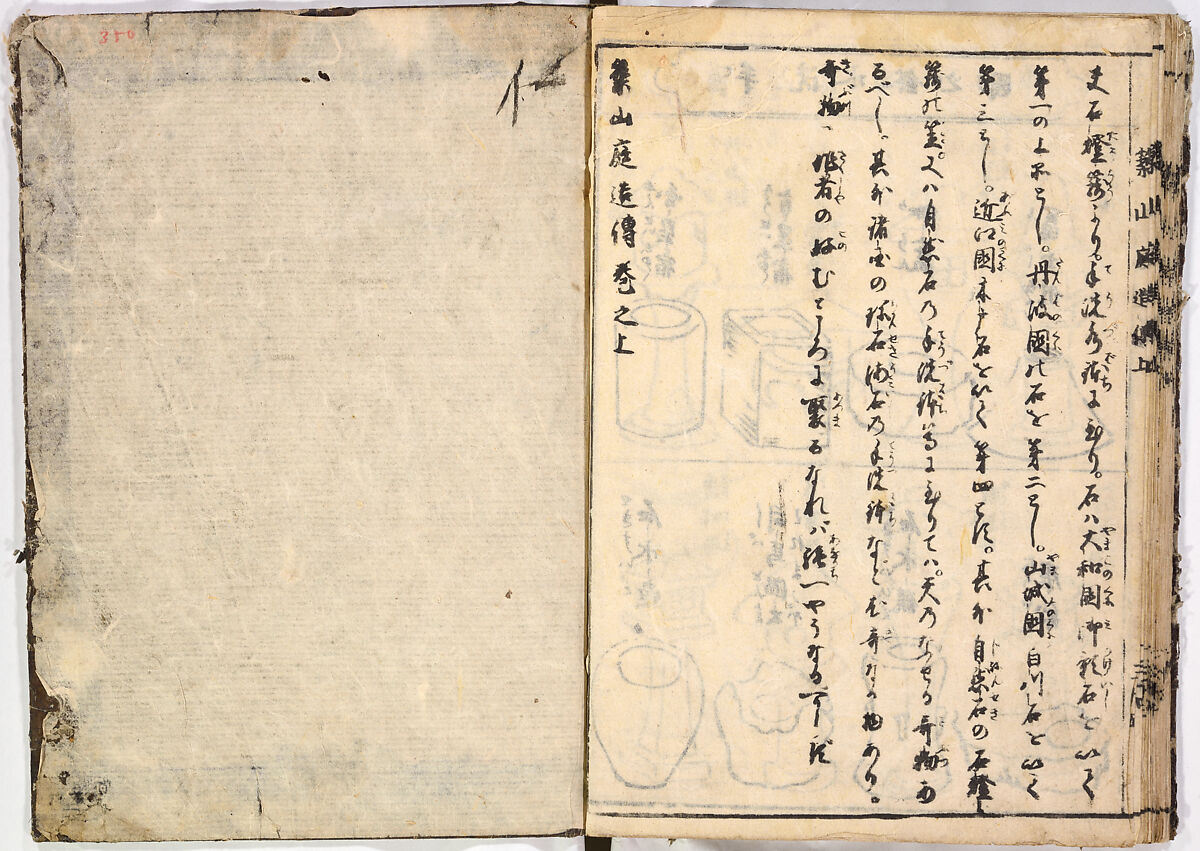 夫石燈籠より。手洗水鉢に至り。石ハ大和國御影石を以て
第一の上品とし。丹波國の石を第二とし。山城國白川石を以て
第三とし。近江國木戸石を以て第四とす。其外自然石の石燈
籠の蓋。又ハ自然石乃手洗鉢等に至りてハ。天乃なせる奇物あ
るべし。其外諸国の珍石海石乃手洗鉢など甚奇なる物あり。
奇物ハ作者の好むところに聚るなれハ強一やうなる
築山庭造傳巻之上
築山庭造傳上
350